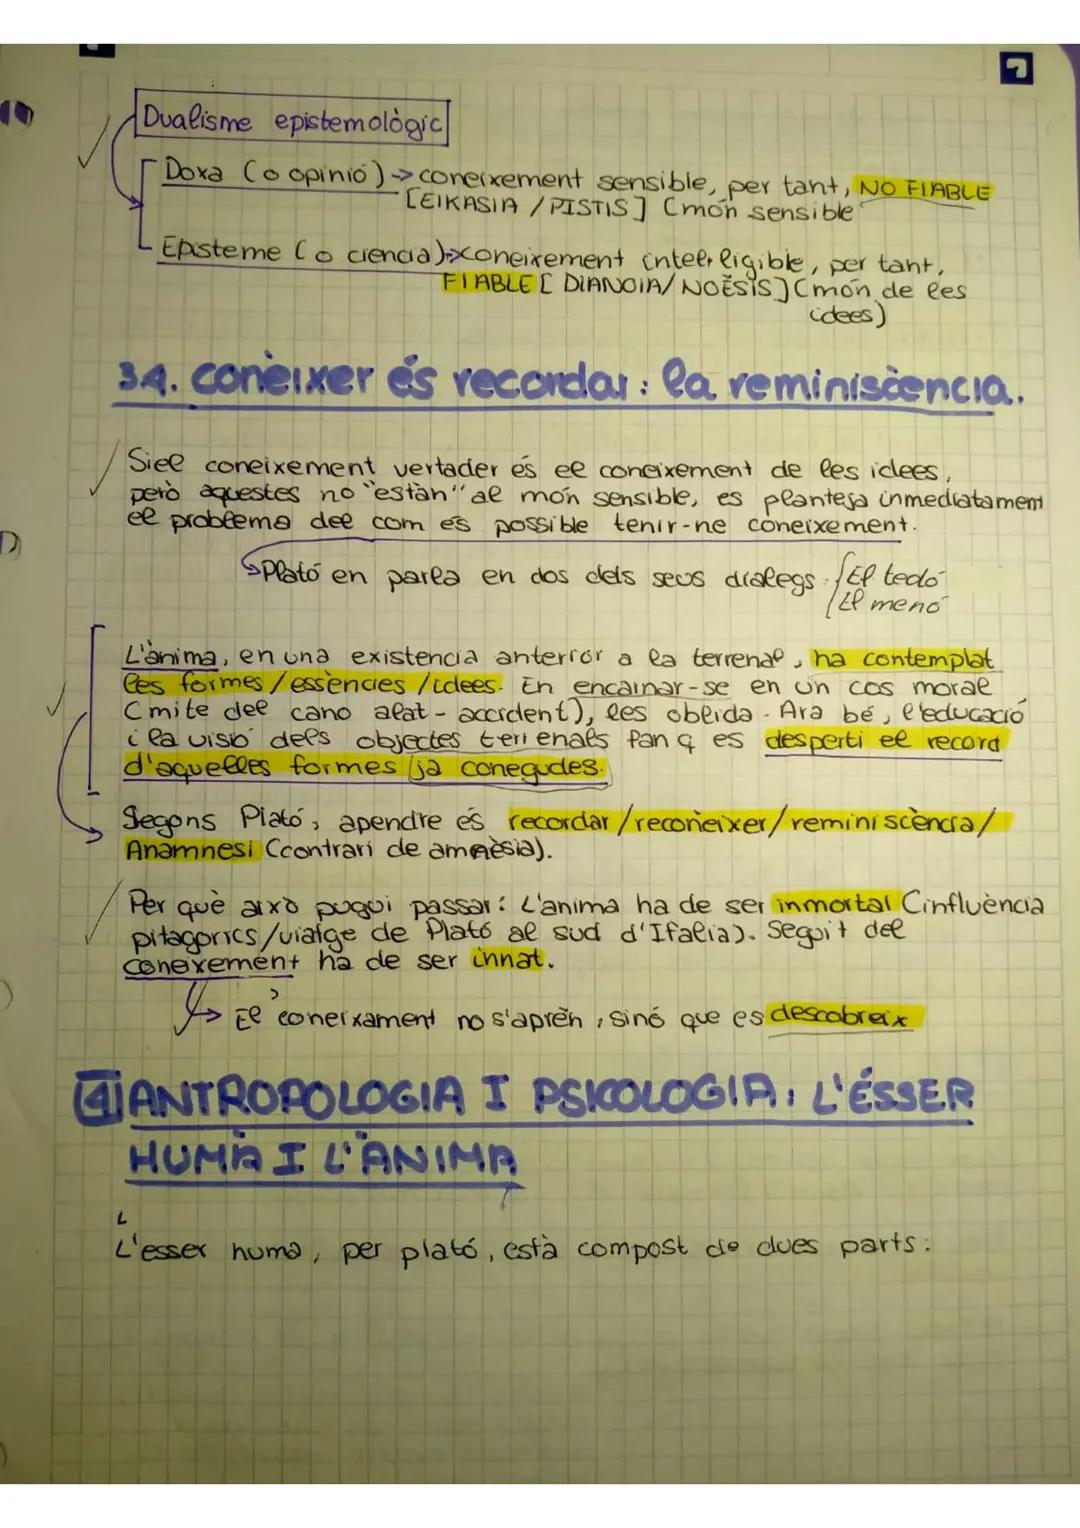 Dualisme epistemològic
Doxa (o opinió) -> coneixement sensible, per tant, NO FIABLE
[EIKASIA / PISTIS] (món sensible
Episteme (o ciencia) -> coneixement intel·ligible, per tant,
FIABLE [DIANOIA/NOĒSIS] (món de les
idees)
3.4. conèixer és recordar: la reminiscència.
Si el coneixement vertader és el coneixement de les idees,
però aquestes no "estàn" al món sensible, es planteja inmediatament
el problema del com és possible tenir-ne coneixement.
Plató en parla en dos dels seus dialegs
El fedó
El menó
L'ànima, en una existencia anterior a la terrenal, ha contemplat
les formes/essències/idees. En encarnar-se en un cos moral
(mite del carro alat - accident), les oblida. Ara bé, l'educació
i la visió dels objectes terrenals fan q es desperti el record
d'aquelles formes ja conegudes.
Segons Plató, apendre és recordar/reconeixer/reminiscència/
Anamnesi (contrari de amnèsia).
Per què això pugui passar: L'anima ha de ser inmortal (influència
pitagorics/viatge de Plató al sud d'Italia). Seguit del
coneixement ha de ser innat.
El coneixament no s'aprèn, sinó que es descobreix
4 ANTROPOLOGIA I PSICOLOGIA: L'ÉSSER
HUMÀ I L'ÀNIMA
L'esser humà, per plató, està compost de dues parts: